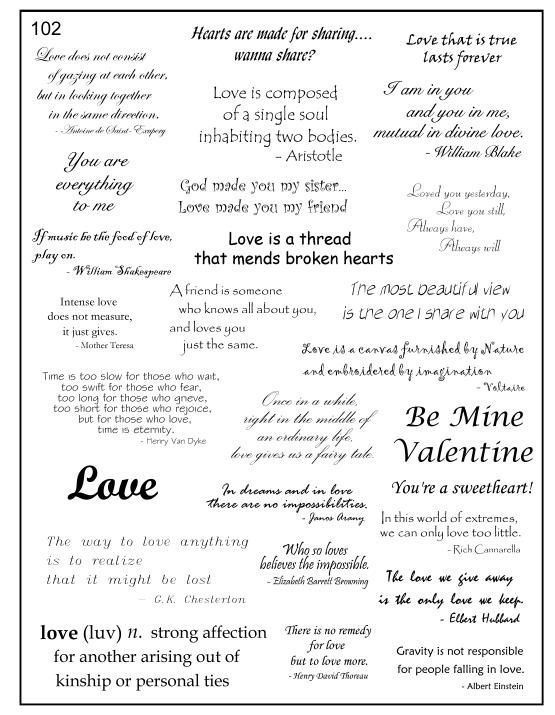 102
Love does not consist
of gazing at each other,
but in looking together
in the same direction.
- -Antoine de Saint- Exupery
Hearts are made for sharing....
wanna share?
Love that is true
lasts forever
Love is composed
of a single soul
inhabiting two bodies.
- Aristotle
I am in you
and you in me,
mutual in divine love.
- William Blake
You are
everything
to me
God made you my sister...
Love made you my friend
Loved you yesterday,
Love you still,
Always have,
Always will
If music be the food of love,
play on.
- William Shakespeare
Love is a thread
that mends broken hearts
Intense love
does not measure,
it just gives.
- Mother Teresa
A friend is someone
who knows all about you,
and loves you
just the same.
The most beautiful view
is the one I share with you
Love is a canvas furnished by Nature
and embroidered by imagination
- Voltaire
Time is too slow for those who wait,
too swift for those who fear,
too long for those who grieve,
too short for those who rejoice,
but for those who love,
time is eternity.
- Henry Van Dyke
Once in a while,
right in the middle of
an ordinary life,
love gives us a fairy tale.
Be Mine
Valentine
Love
In dreams and in love
there are no impossibilities.
- Janos Arany
You're a sweetheart!
In this world of extremes,
we can only love too little.
- Rich Cannarella
The way to love anything
is to realize
that it might be lost
- G.K. Chesterton
Who so loves
believes the impossible.
- Elizabeth Barrett Browning
The love we give away
is the only love we keep.
- Elbert Hubbard
love (luv) n. strong affection
for another arising out of
kinship or personal ties
There is no remedy
for love
but to love more.
- Henry David Thoreau
Gravity is not responsible
for people falling in love.
- Albert Einstein